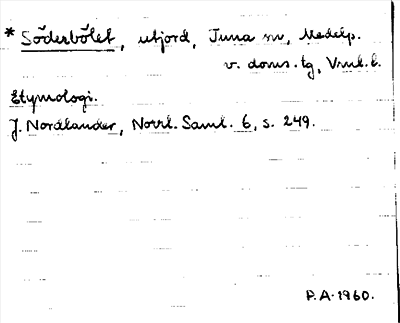 * Söderbölet, utjord, Tuna sn, Medelp.
v. doms. tg, Vnrl. l.
Etymologi.
J. Nordlander, Norrl. Saml. 6, s. 249.
P.A. 1960.